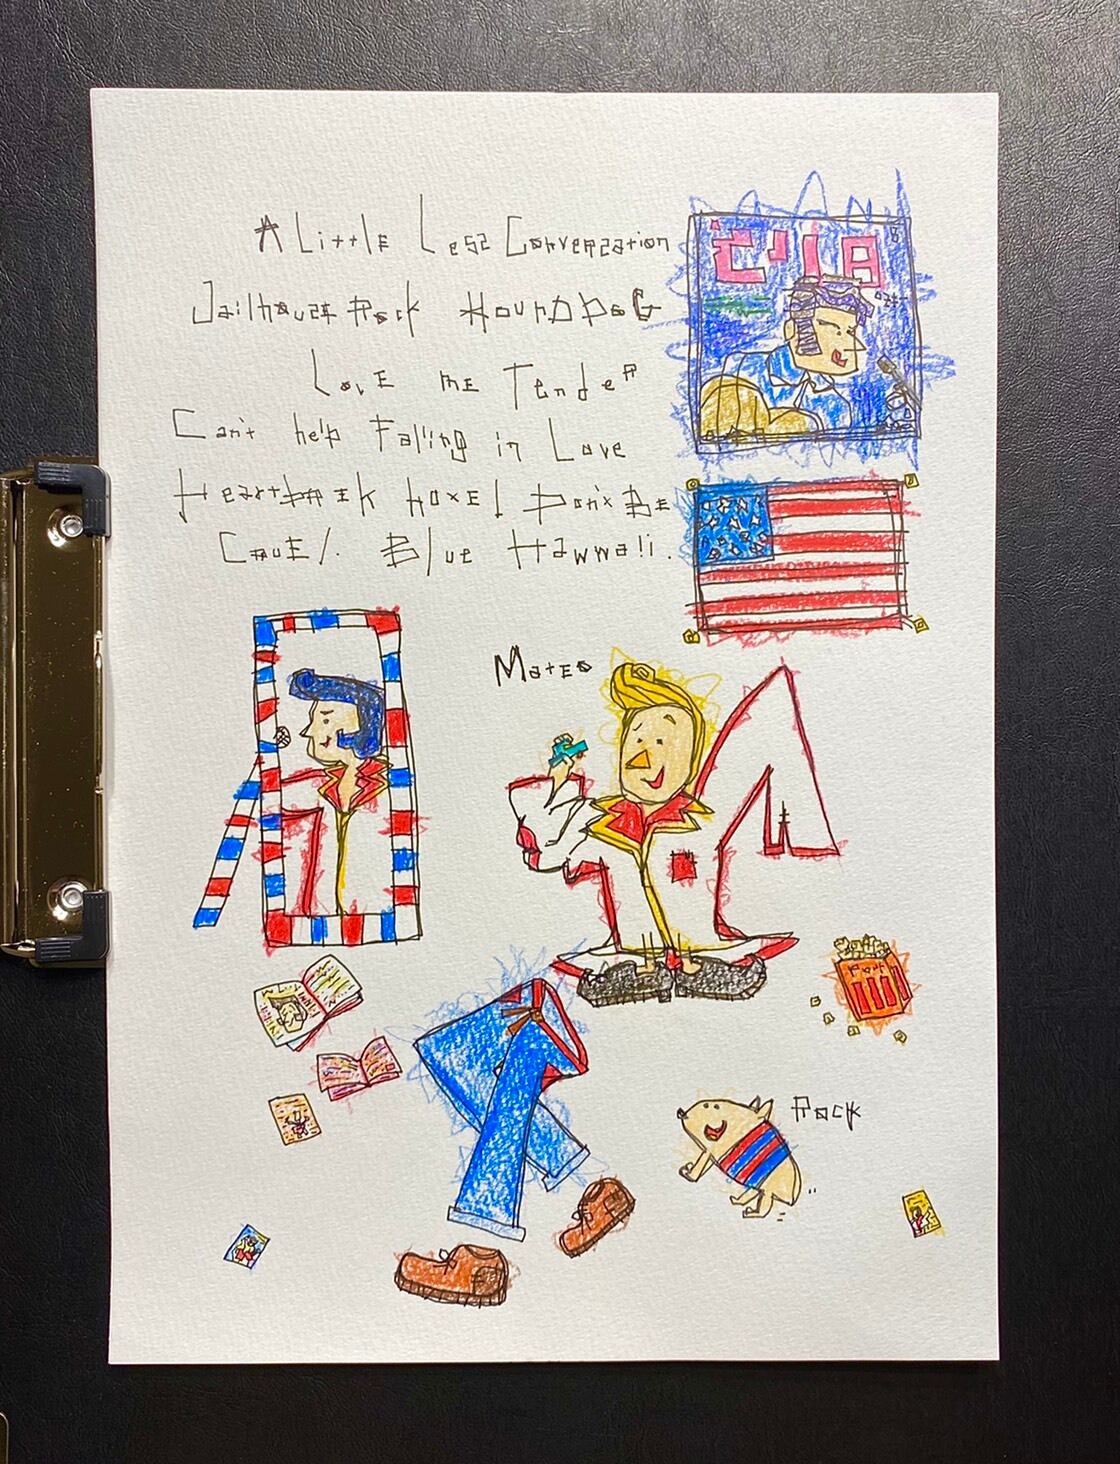 A Little Less Conversation
Jailhouse Rock HounD DoG
LovE mE TendeR
Can't help Falling in Love
Heartbreak Hotel Don't BE
CruEl. Blue Hawwaii.
MatEo
Rock